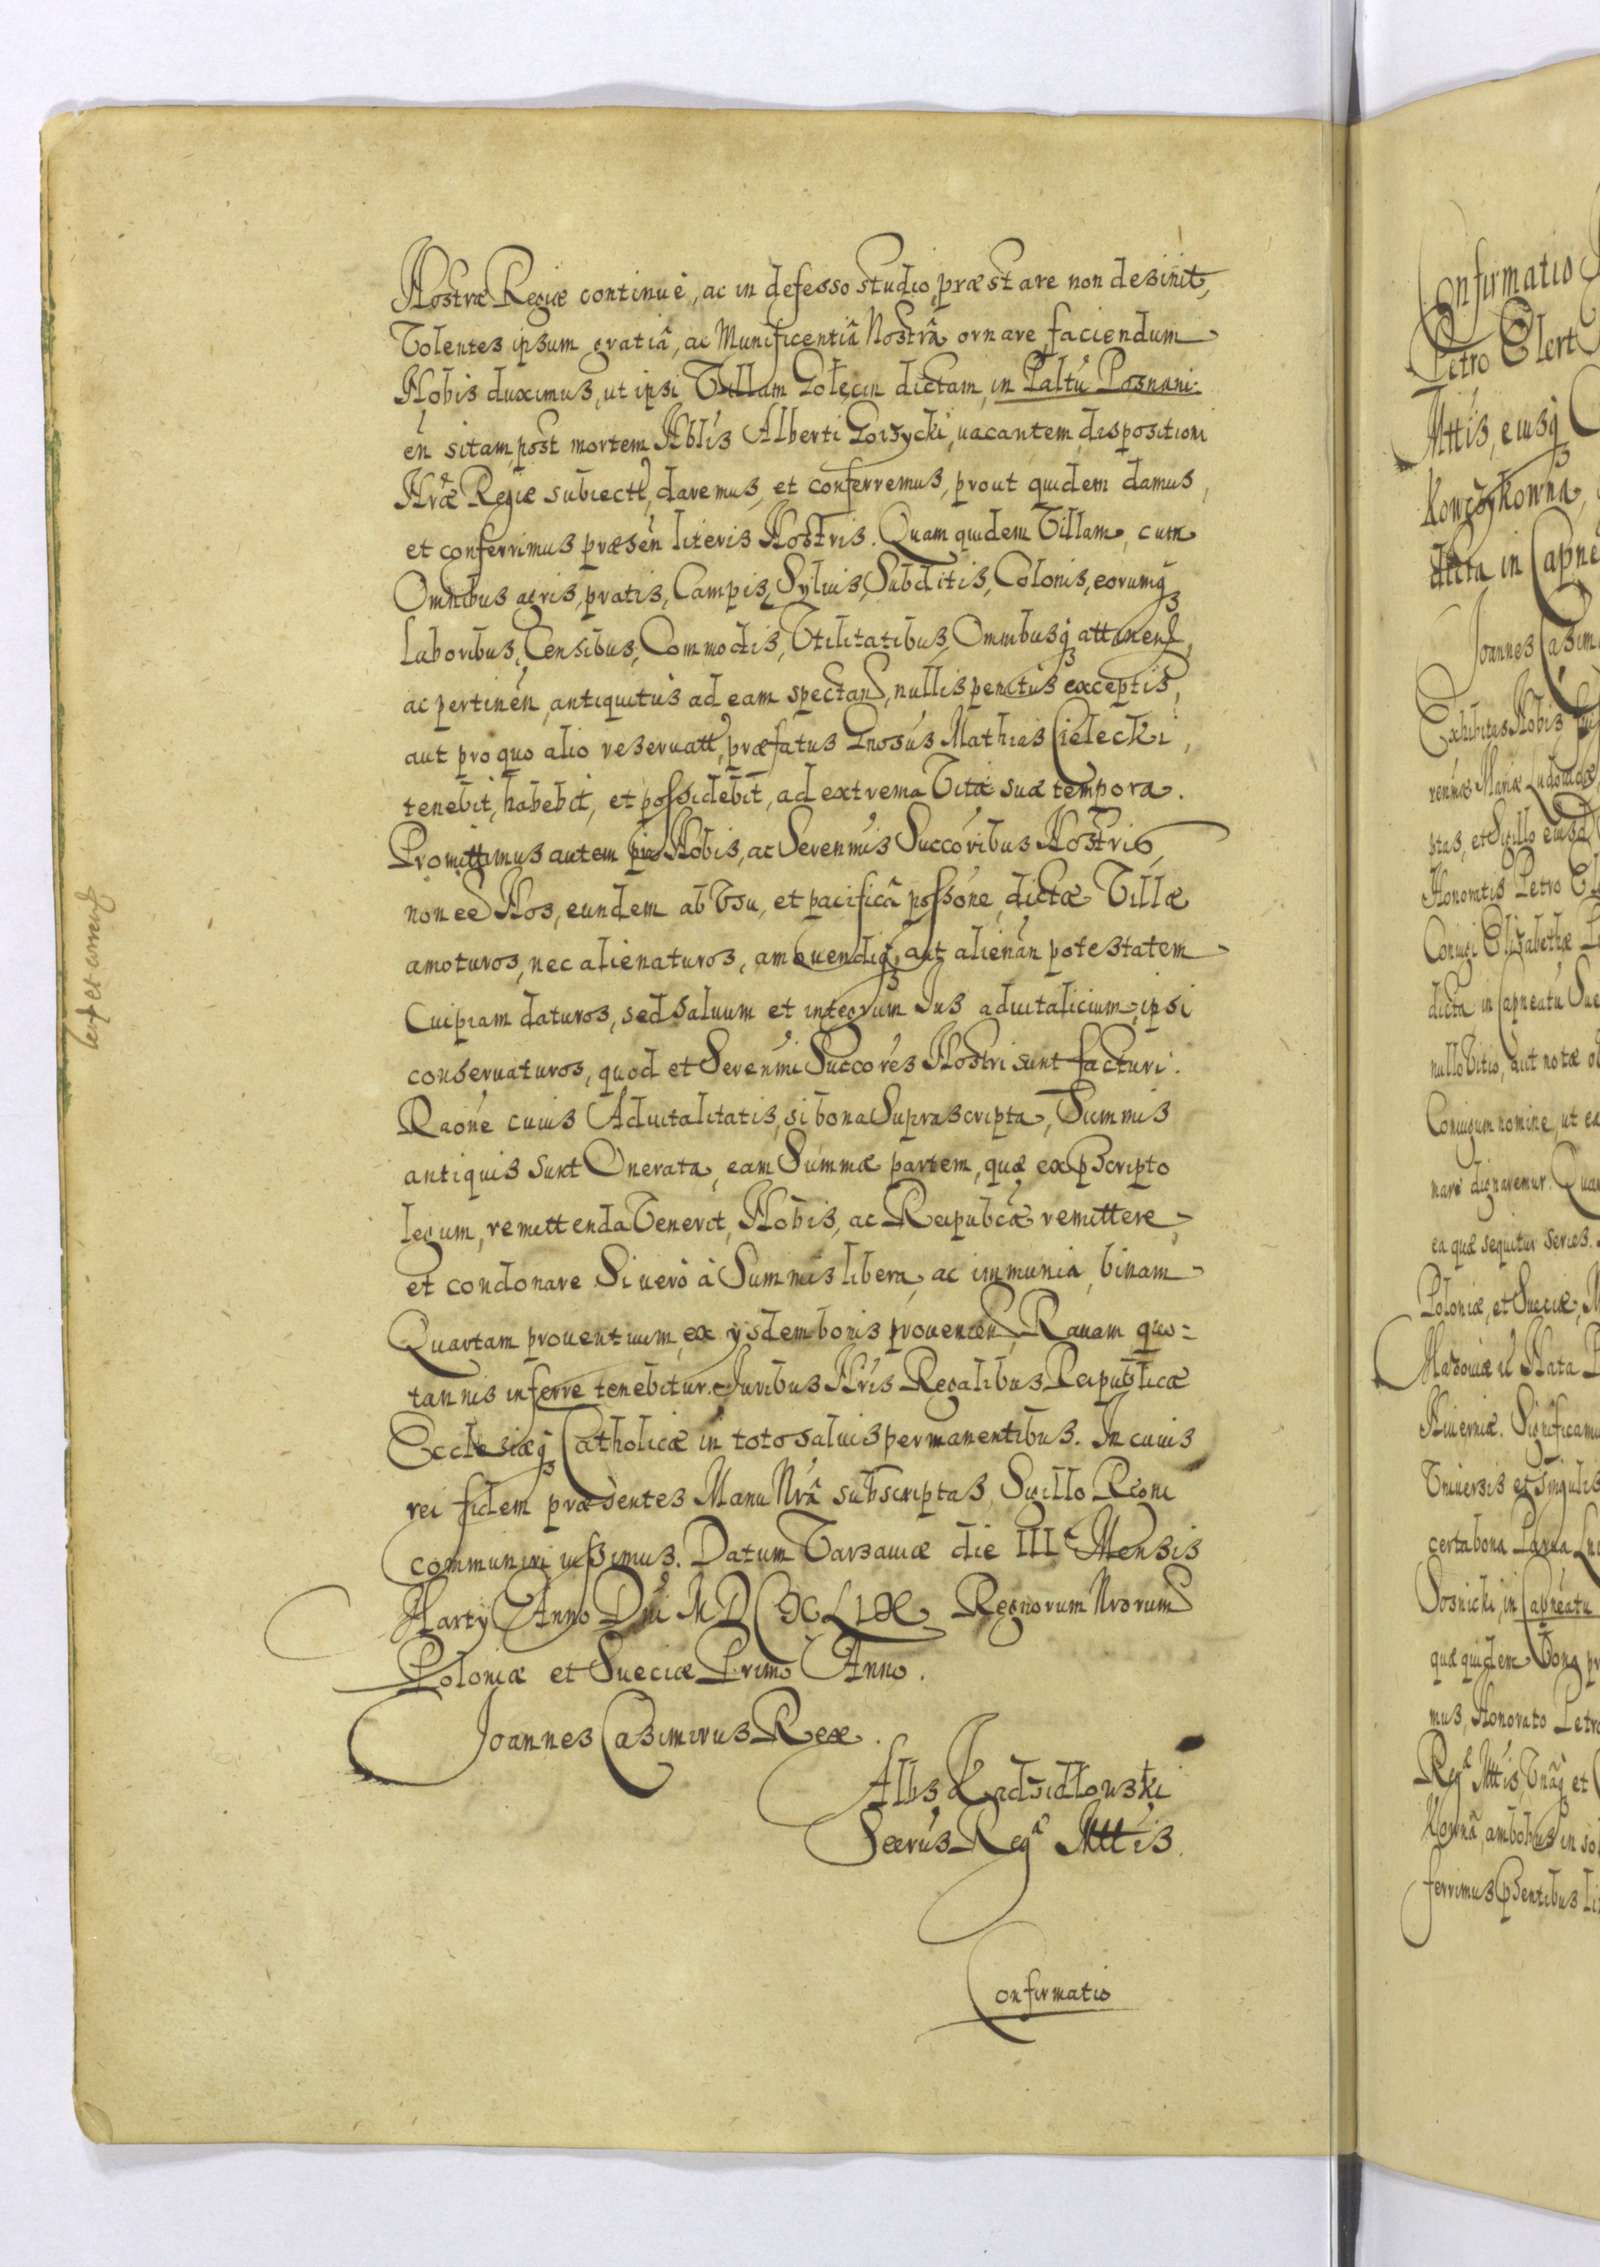 Nostræ Regiæ continuè, ac in defesso studio, præstare non desinit,
Volentes ipsum gratiâ, ac Munificentiâ Nostrâ ornare, faciendum
Nobis duximus, ut ipsi Villam Golęcin dictam, in Paltũ Posnani-
eñ sitam, post mortem Nblis Alberti Gorzycki, uacantem, dispositioni
Nræ Regiæ subiectt, daremus, et conferremus, prout quidem damus,
et conferrimus præseñ literis Nostris. Quam quidem Villam, cum
Omnibus agris, pratis, Campis, Syluis, Subditis, Colonis, eorumq3
Laboribus, Censibus, Commodis, Vtilitatibus, Omnibusq3 attinen,
ac pertineñ, antiquitùs ad eam spectan, nullis penitùs exceptis,
aut pro quo alio reseruatt, præfatus Gnosus Mathias Cielecki,
tenebit, habebit, et possidebit, ad extrema Vitæ suæ tempora.
Promittimus autem pro Nobis, ac Serenmis Succoribus Nostris,
non eē Nos, eundem ab Vsu, et pacificâ possone, dictæ Villæ
amoturos, nec alienaturos, amouendiq3, aut alienañ potestatem
Cuipiam daturos, sed saluum et integrum Jus aduitalicium, ipsi
conseruaturos, quod et Serenmi Succores Nostri sunt facturi.
Raone cuius Aduitalitatis, si bona Suprascripta, Summis
antiquis sunt Onerata, eam Summæ partem, quæ ex pscripto
legum, remittenda Venerit, Nobis, ac Reipubcæ remittere,
et condonare Si uerò à Summis libera, ac immunia, binam
Quartam prouentuum, ex ysdem bonis prouenien, Rauam quo-
tannis inferre tenebitur. Juribus Nris Regalibus Reipublicæ
Ecclesiæq3 Catholicæ in toto saluis permanentibus. In cuius
rei fidem præsentes Manu Nrâ subscriptas, Sigillo Regni
communiri iussimus. Datum Varsauiæ die III Mensis
Marty Anno Dni MDCXLIX Regnorum Nrorum
Poloniæ et Sueciæ Primo Anno.
Joannes Casimirus Rex.
Albs Radzidłowski
Secrus Reg Mttis.
Confirmatio
Confirmatio
Petro Elert
Mttis, eiusq3
Kowna,
dicta in Capne
Joannes Casim
Exhibitas Nobis
renmæ Mariæ Ludouicæ,
stas, et Sigillo eiusd
Honoratis Petro El
Coniugi Elisabethæ
dicta in Capneatu Sue
nullo Vitio, aut notæ
Coniugum nomine, ut ea
nare dignaremur. Qua
ea quæ sequitur series.
Poloniæ, et Sueciæ,
Mazouiæ Nata
Niuerniæ. Significamu
Vniuersis et singulis
certa bona
Sosnicki, in Capneatu
quæ quidem Bona
mus, Honorato Petro
Reg Mttis, et
ambobus in
ferrimus psentibus